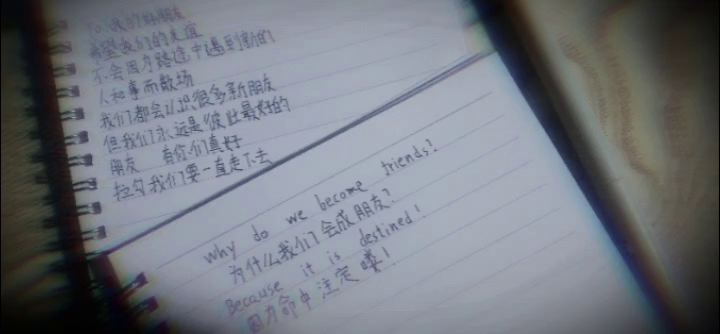 To 我的好朋友
希望我们的友谊
不会因为路途中遇到新的
人和事而散场
我们都会认识很多新朋友
但我们永远是彼此最好的
朋友 有你们真好
拉勾我们要一直走下去
why do we become friends?
为什么我们会成朋友?
Because it is destined!
因为命中注定噢!